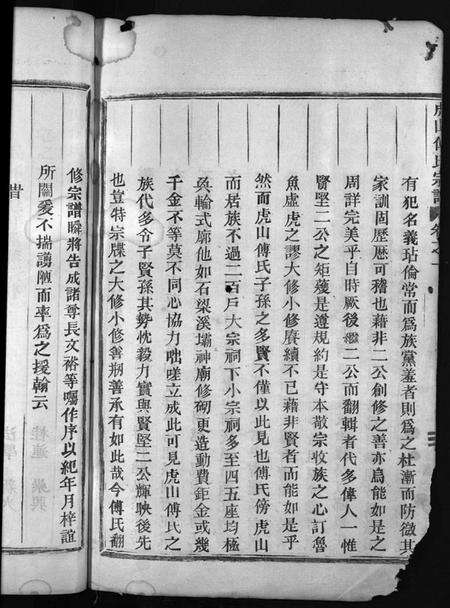 虎山傅氏宗譜
有犯名義玷倫常而為族黨羞者則為之杜漸而防微其
家訓固歷歷可稽也藉非二公創修之善亦烏能如是之
周詳完美乎自時厥後繼二公而翻輯者代多偉人一惟
賢堅二公之矩矱是遵規約是守本敬宗收族之心訂魯
魚虛虎之謬大修小修賡續不已藉非賢者而能如是乎
然而虎山傅氏子孫之多賢不僅以此見也傅氏傍虎山
而居族不過二百戶大宗祠下小宗祠多至四五座均極
奐輪式廓他如石梁溪壩神廟修砌更造動費鉅金或幾
千金不等莫不同心協力咄嗟立成此可見虎山傅氏之
族代多令子賢孫其勢忱毅力實與賢堅二公輝映後先
也豈特宗牒之大修小修善剏善承有如此哉今傅氏翻
修宗譜瞬將告成諸尊長文裕等囑作序以紀年月梓誼
所關爰不揣譾陋而率為之援翰云
昔